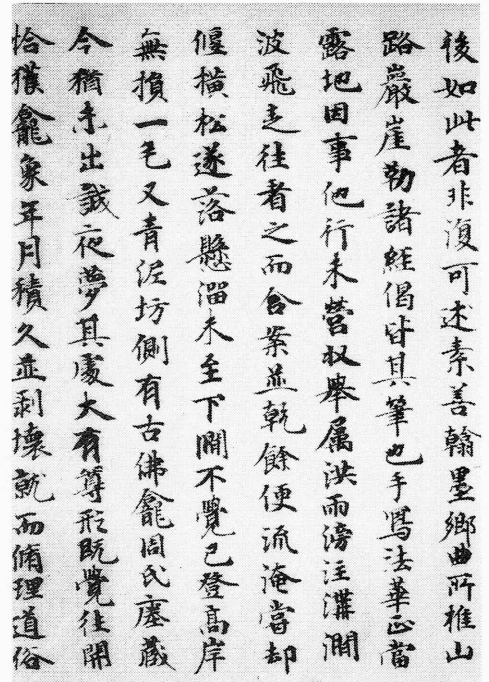 後如此者非復可述素善翰墨鄉曲所推山
路巖崖勒諸經偈皆其筆也手寫法華正當
露地因事他行未營收舉属洪雨滂注溝澗
波飛走往看之而合案並乾餘便流淹當却
偃橫松遂落懸溜未至下澗不覺已登高岸
無損一毛又青泥坊側有古佛龕周氏瘞藏
今猶未出誠夜夢其處大有尊形既覺往開
恰獲龕象年月積久並剥壞就而脩理道俗